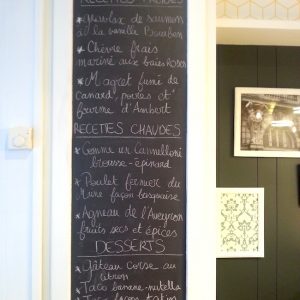 RECETTES FROIDES
* Gravlax de saumon
à la vanille Bourbon
* Chèvre frais
mariné aux baies Roses
* Magret fumé de
canard, poires et
fourme d'Ambert
RECETTES CHAUDES
* Comme un Cannelloni
brousse-épinard
* Poulet fermier du
façon basquaise
* Agneau de l'Aveyron
fruits secs et épices
DESSERTS
* Gâteau corse au
citron
* Taco banane-nutella
façon tatin